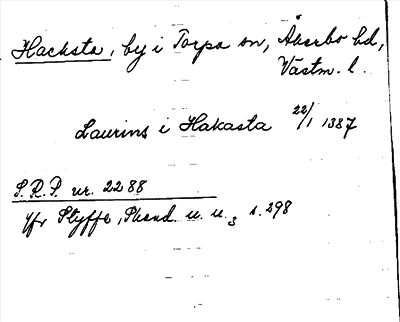 Hacksta, by i Torpa sn, Åkerbo hd,
Västm. l.
Laurins i Hakasta 22/1 1387
S.R.P. nr. 2288
Jfr Styffe, Skand. u. u.3 s. 298